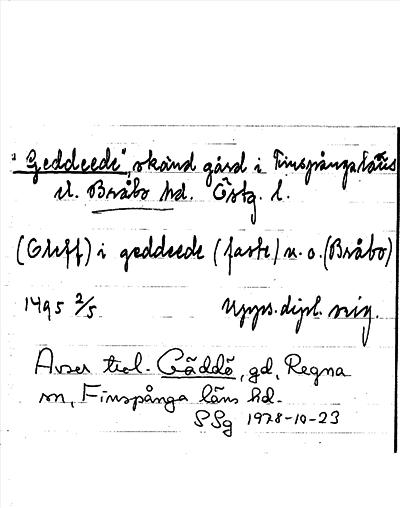 "Geddeede", okänd gård i Finspånga läns
el. Bråbo hd. Östg. l.
(Oleff) i geddeede (faste) n. o. (Bråbo)
1495 2/5 Upps. dipl. reg.
Avser trol. Gäddö, gd, Regna
sn, Finspånga läns hd.
SSg 1978-10-23